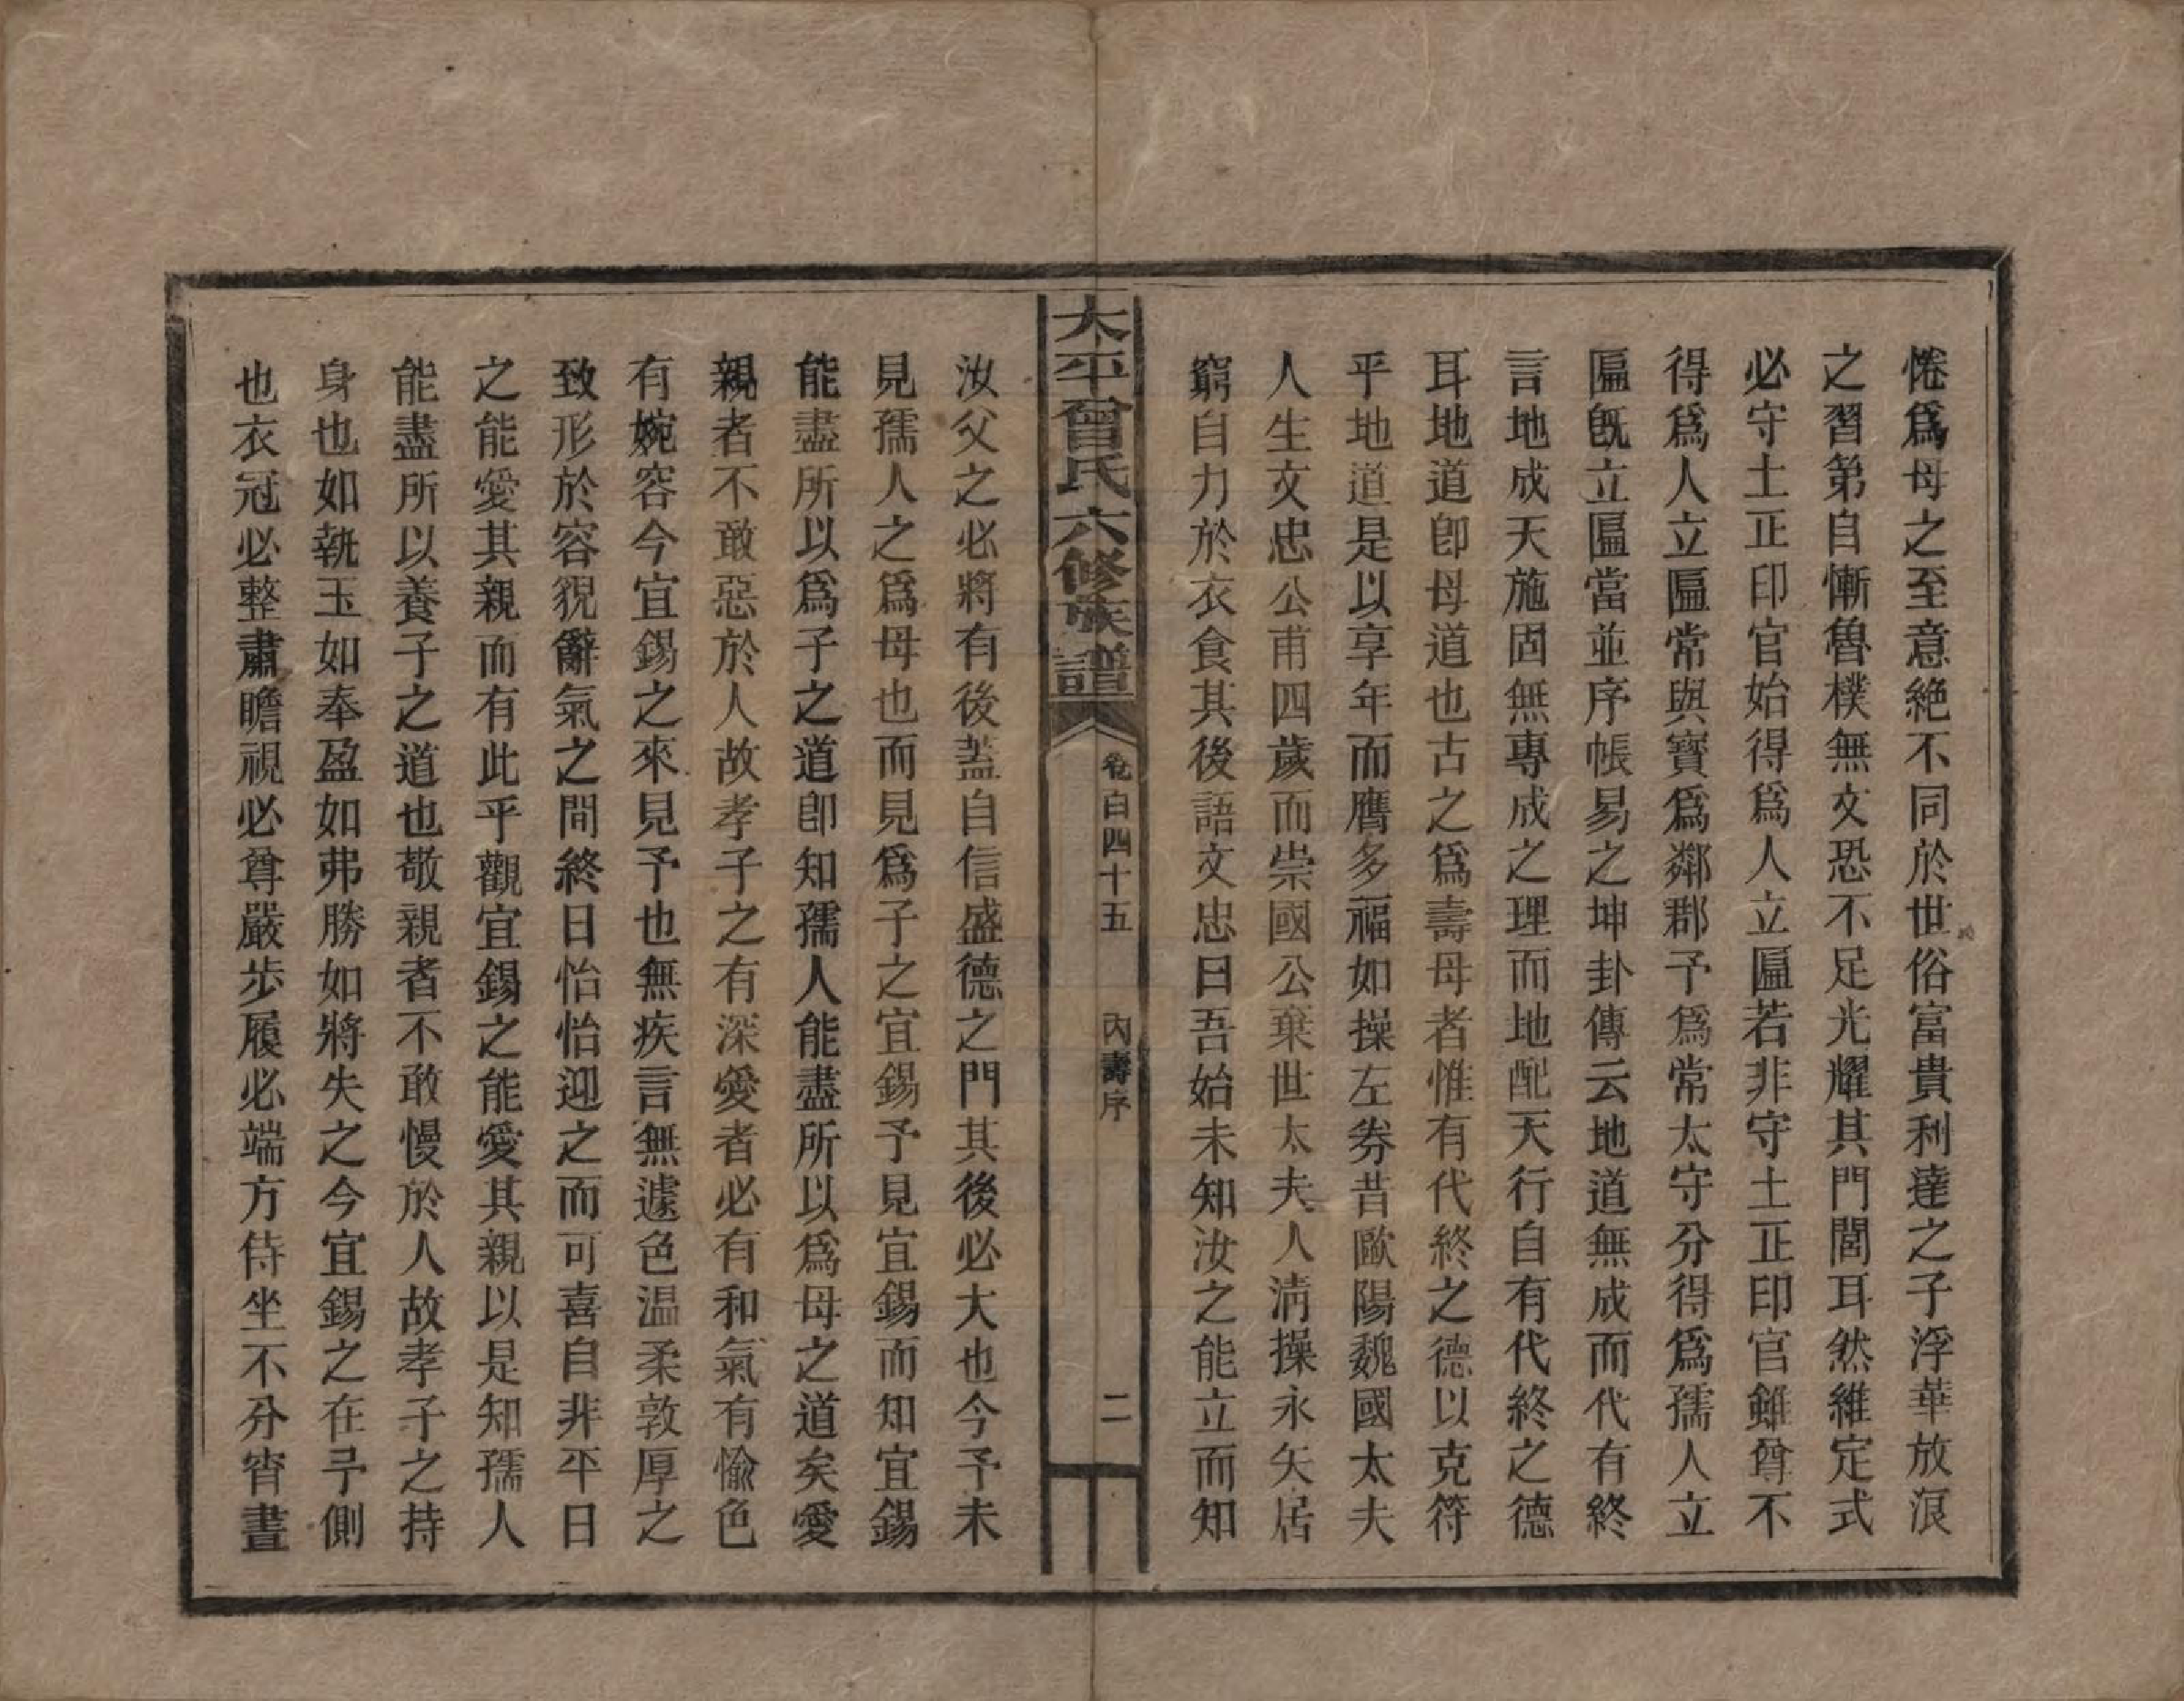 惓爲母之至意絶不同於世俗富貴利達之子浮華放浪
之習第自慚魯樸無文恐不足光耀其門閭耳然維定式
必守土正印官始得爲人立匾若非守土正印官雖尊不
得爲人立匾常與寶爲鄰郡予爲常太守分得爲孺人立
匾旣立匾當並序帳易之坤卦傳云地道無成而代有終
言地成天施固無專成之理而地配天行自有代終之德
耳地道卽母道也古之爲壽母者惟有代終之德以克符
乎地道是以享年而膺多福如操左券昔歐陽魏國太夫
人生文忠公甫四歲而崇國公棄世太夫人淸操永矢居
窮自力於衣食其後語文忠曰吾始未知汝之能立而知
太平曾氏六修族譜 卷百四十五 內壽序 二
汝父之必將有後蓋自信盛德之門其後必大也今予未
見孺人之爲母也而見爲子之宜錫予見宜錫而知宜錫
能盡所以爲子之道卽知孺人能盡所以爲母之道矣愛
親者不敢惡於人故孝子之有深愛者必有和氣有愉色
有婉容今宜錫之來見予也無疾言無遽色温柔敦厚之
致形於容貌辭氣之間終日怡怡迎之而可喜自非平日
之能愛其親而有此乎觀宜錫之能愛其親以是知孺人
能盡所以養子之道也敬親者不敢慢於人故孝子之持
身也如執玉如奉盈如弗勝如將失之今宜錫之在予側
也衣冠必整肅瞻視必尊嚴步履必端方侍坐不分宵晝